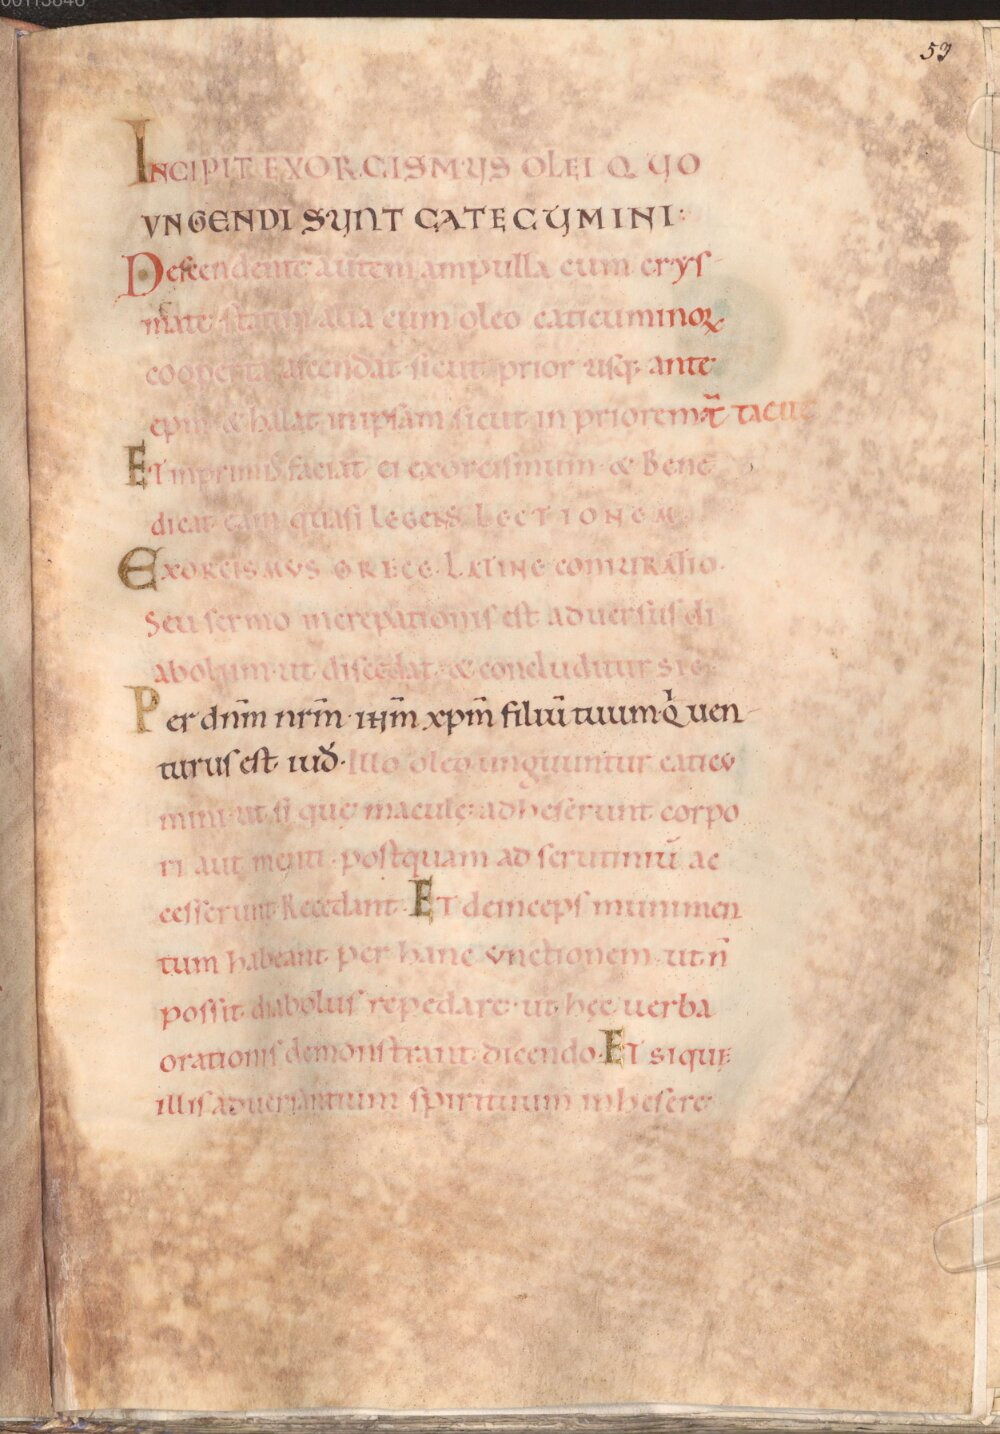 00113846
53
INCIPIT EXORCISMUS OLEI QUO
VNGENDI SUNT CATECUMINI:
Descendente autem ampulla cum crys
mate statim alia cum oleo caticuminoꝝ
cooperta ascendat sicut prior usq; ante
ep̄m & halat in ipsam sicut in priorem tacite
Et inprimis faciat ei exorcismum & bene
dicat eam quasi legens LECTIONEM
EXORCISMVS GRECE LATINE coniuratio.
Seu sermo increpationis est aduersus di
abolum ut discedat & concluditur sic;
Per dn̄m nr̄m ih̄m xp̄m filiū tuum Qui uen
turus est iud̄. Illo oleo unguuntur caticu
mini ut si quę maculę adheserunt corpo
ri aut menti postquam ad scrutiniū ac
cesserunt Recedant. Et deinceps munimen
tum habeant per hanc vnctionem ut n̄
possit diabolus repedare ut hęc uerba
orationis demonstrant dicendo. Et si quę
illis aduersantium spirituum inhesere